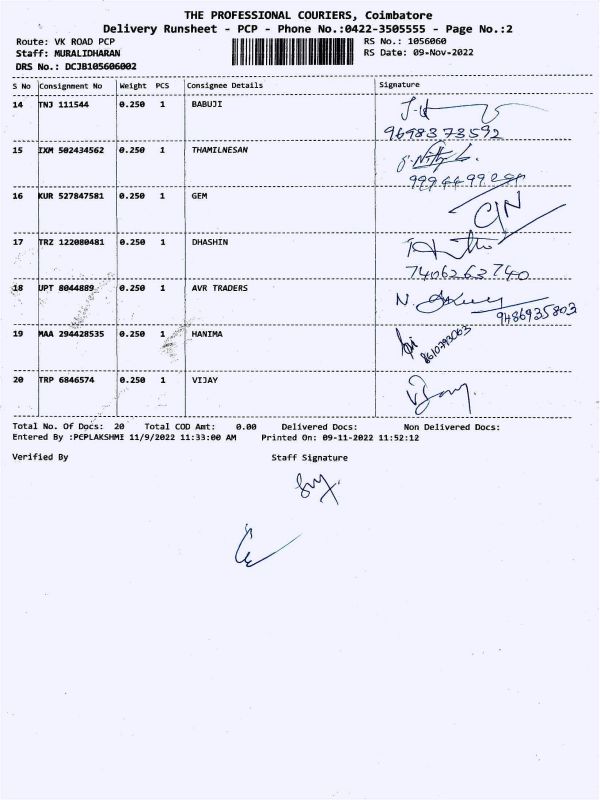 THE PROFESSIONAL COURIERS, Coimbatore
Delivery Runsheet - PCP - Phone No.:0422-3505555 - Page No.:2
Route: VK ROAD PCP RS No.: 1056060
Staff: MURALIDHARAN RS Date: 09-Nov-2022
DRS No.: DCJB105606002
S No Consignment No Weight PCS Consignee Details Signature
14 TNJ 111544 0.250 1 BABUJI
9698373592
15 IXM 502434562 0.250 1 THAMILNESAN
16 KUR 527847581 0.250 1 GEM
17 TRZ 122080481 0.250 1 DHASHIN
7406263740
18 UPT 8044889 0.250 1 AVR TRADERS
9486935803
19 MAA 294428535 0.250 1 HANIMA
8610793063
20 TRP 6846574 0.250 1 VIJAY
Total No. Of Docs: 20 Total COD Amt: 0.00 Delivered Docs: Non Delivered Docs:
Entered By :PCPLAKSHMI 11/9/2022 11:33:00 AM Printed On: 09-11-2022 11:52:12
Verified By Staff Signature